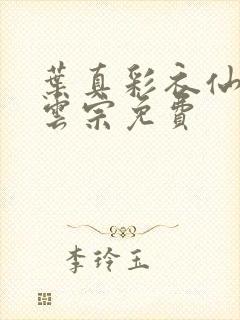 葉真彩衣仙
雲宗免費
李玲玉